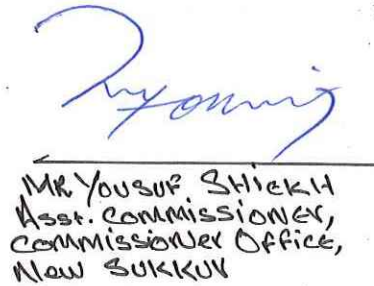 MR YOUSUF SHIEKH
Asst. COMMISSIONER,
COMMISSIONER OFFICE,
NEW SUKKUR